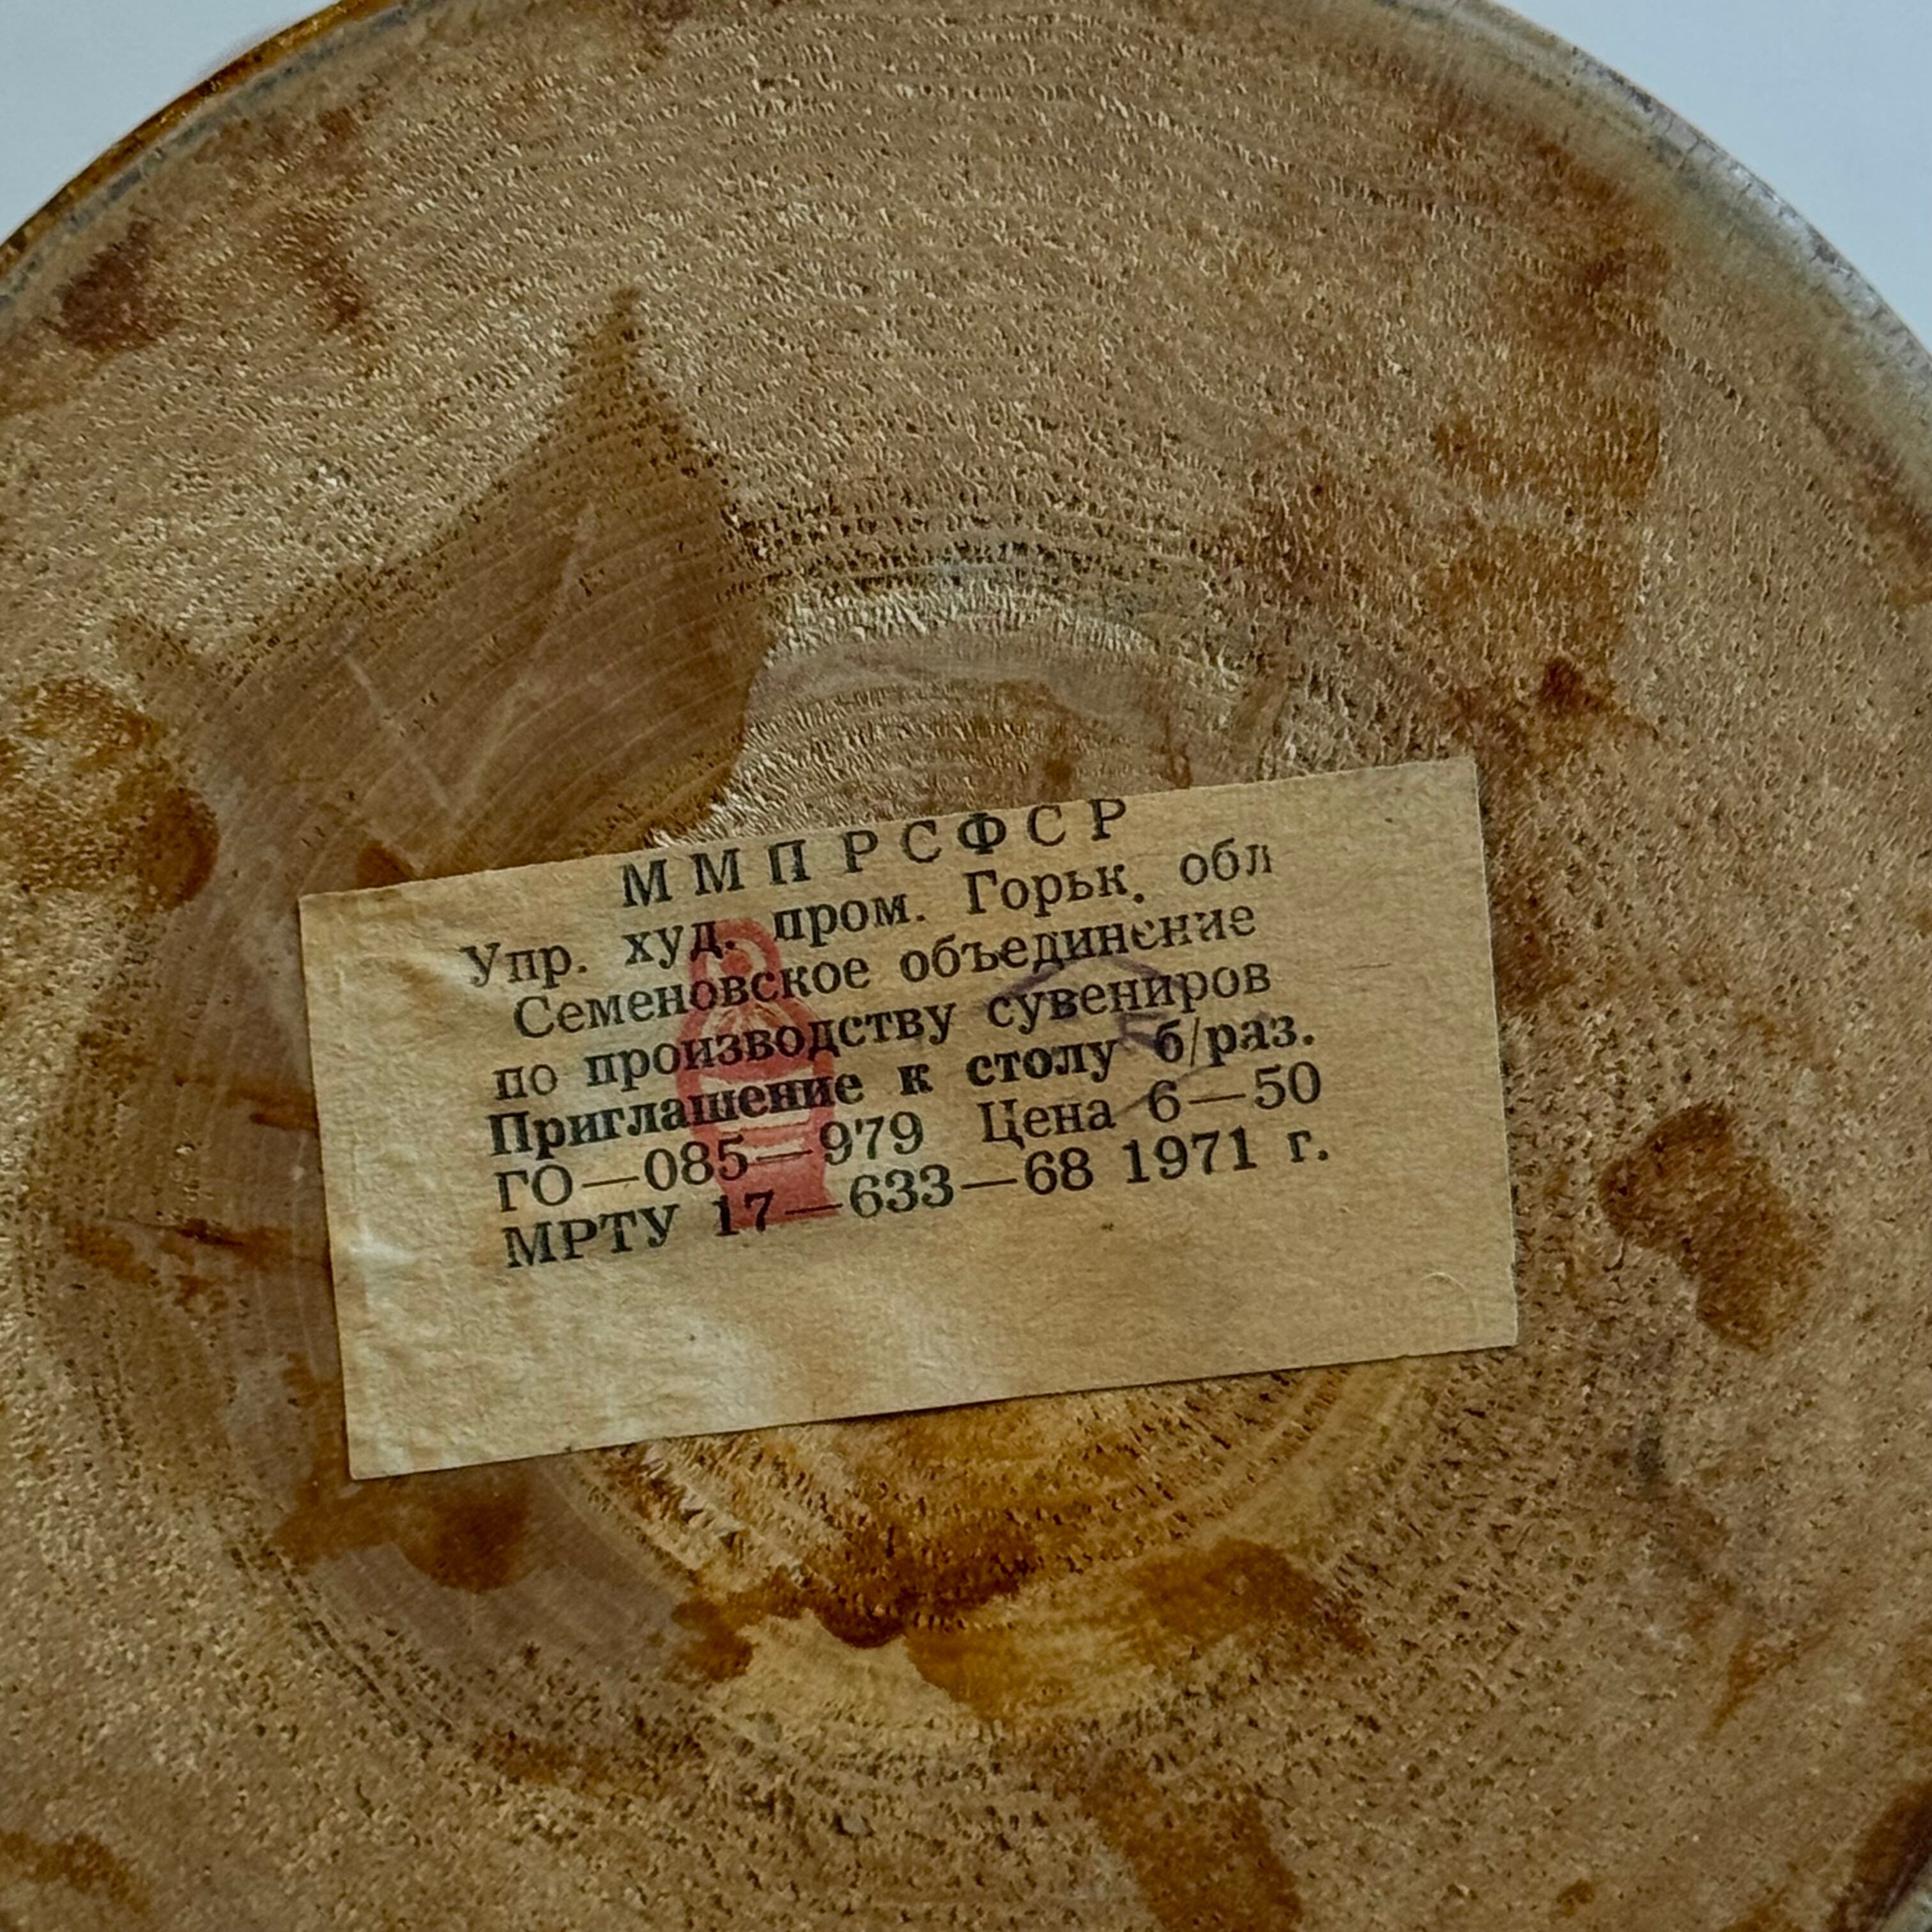 ММП РСФСР
Упр. худ. пром. Горьк. обл
Семеновское объединение
по производству сувениров
Приглашение к столу б/раз.
ГО—085—979 Цена 6—50
МРТУ 17—633—68 1971 г.